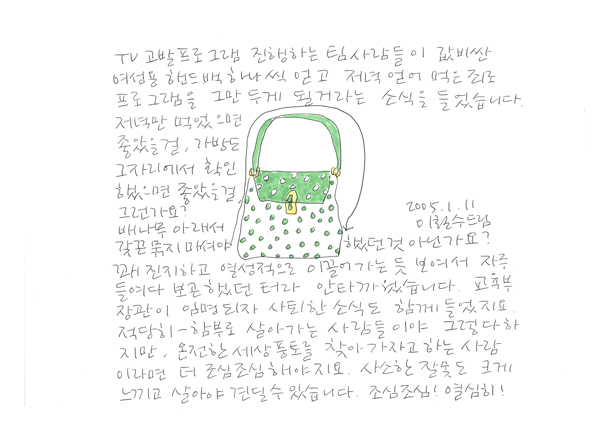 TV 고발프로그램 진행하는 팀사람들이 값비싼
여성용 핸드백 하나씩 얻고 저녁 얻어 먹은 죄로
프로그램을 그만두게 될거라는 소식을 들었습니다.
저녁만 먹었으면
좋았을걸, 가방도
그자리에서 확인
했으면 좋았을걸
그런가요?
배나무 아래서
갓끈 묶지 마셔야
했던것 아닌가요?
2005.1.11
이철수드림
꽤 진지하고 열성적으로 이끌어가는 듯 보여서 자주
들여다 보곤했던 터라 안타까웠습니다. 교육부
장관이 임명되자 사퇴한 소식도 함께 들었지요.
적당히-함부로 살아가는 사람들이야 그렇다하
지만, 온전한 세상풍토를 찾아가자고하는 사람
이라면 더 조심조심해야지요. 사소한 잘못도 크게
느끼고 살아야 견딜수있습니다. 조심조심! 열심히!